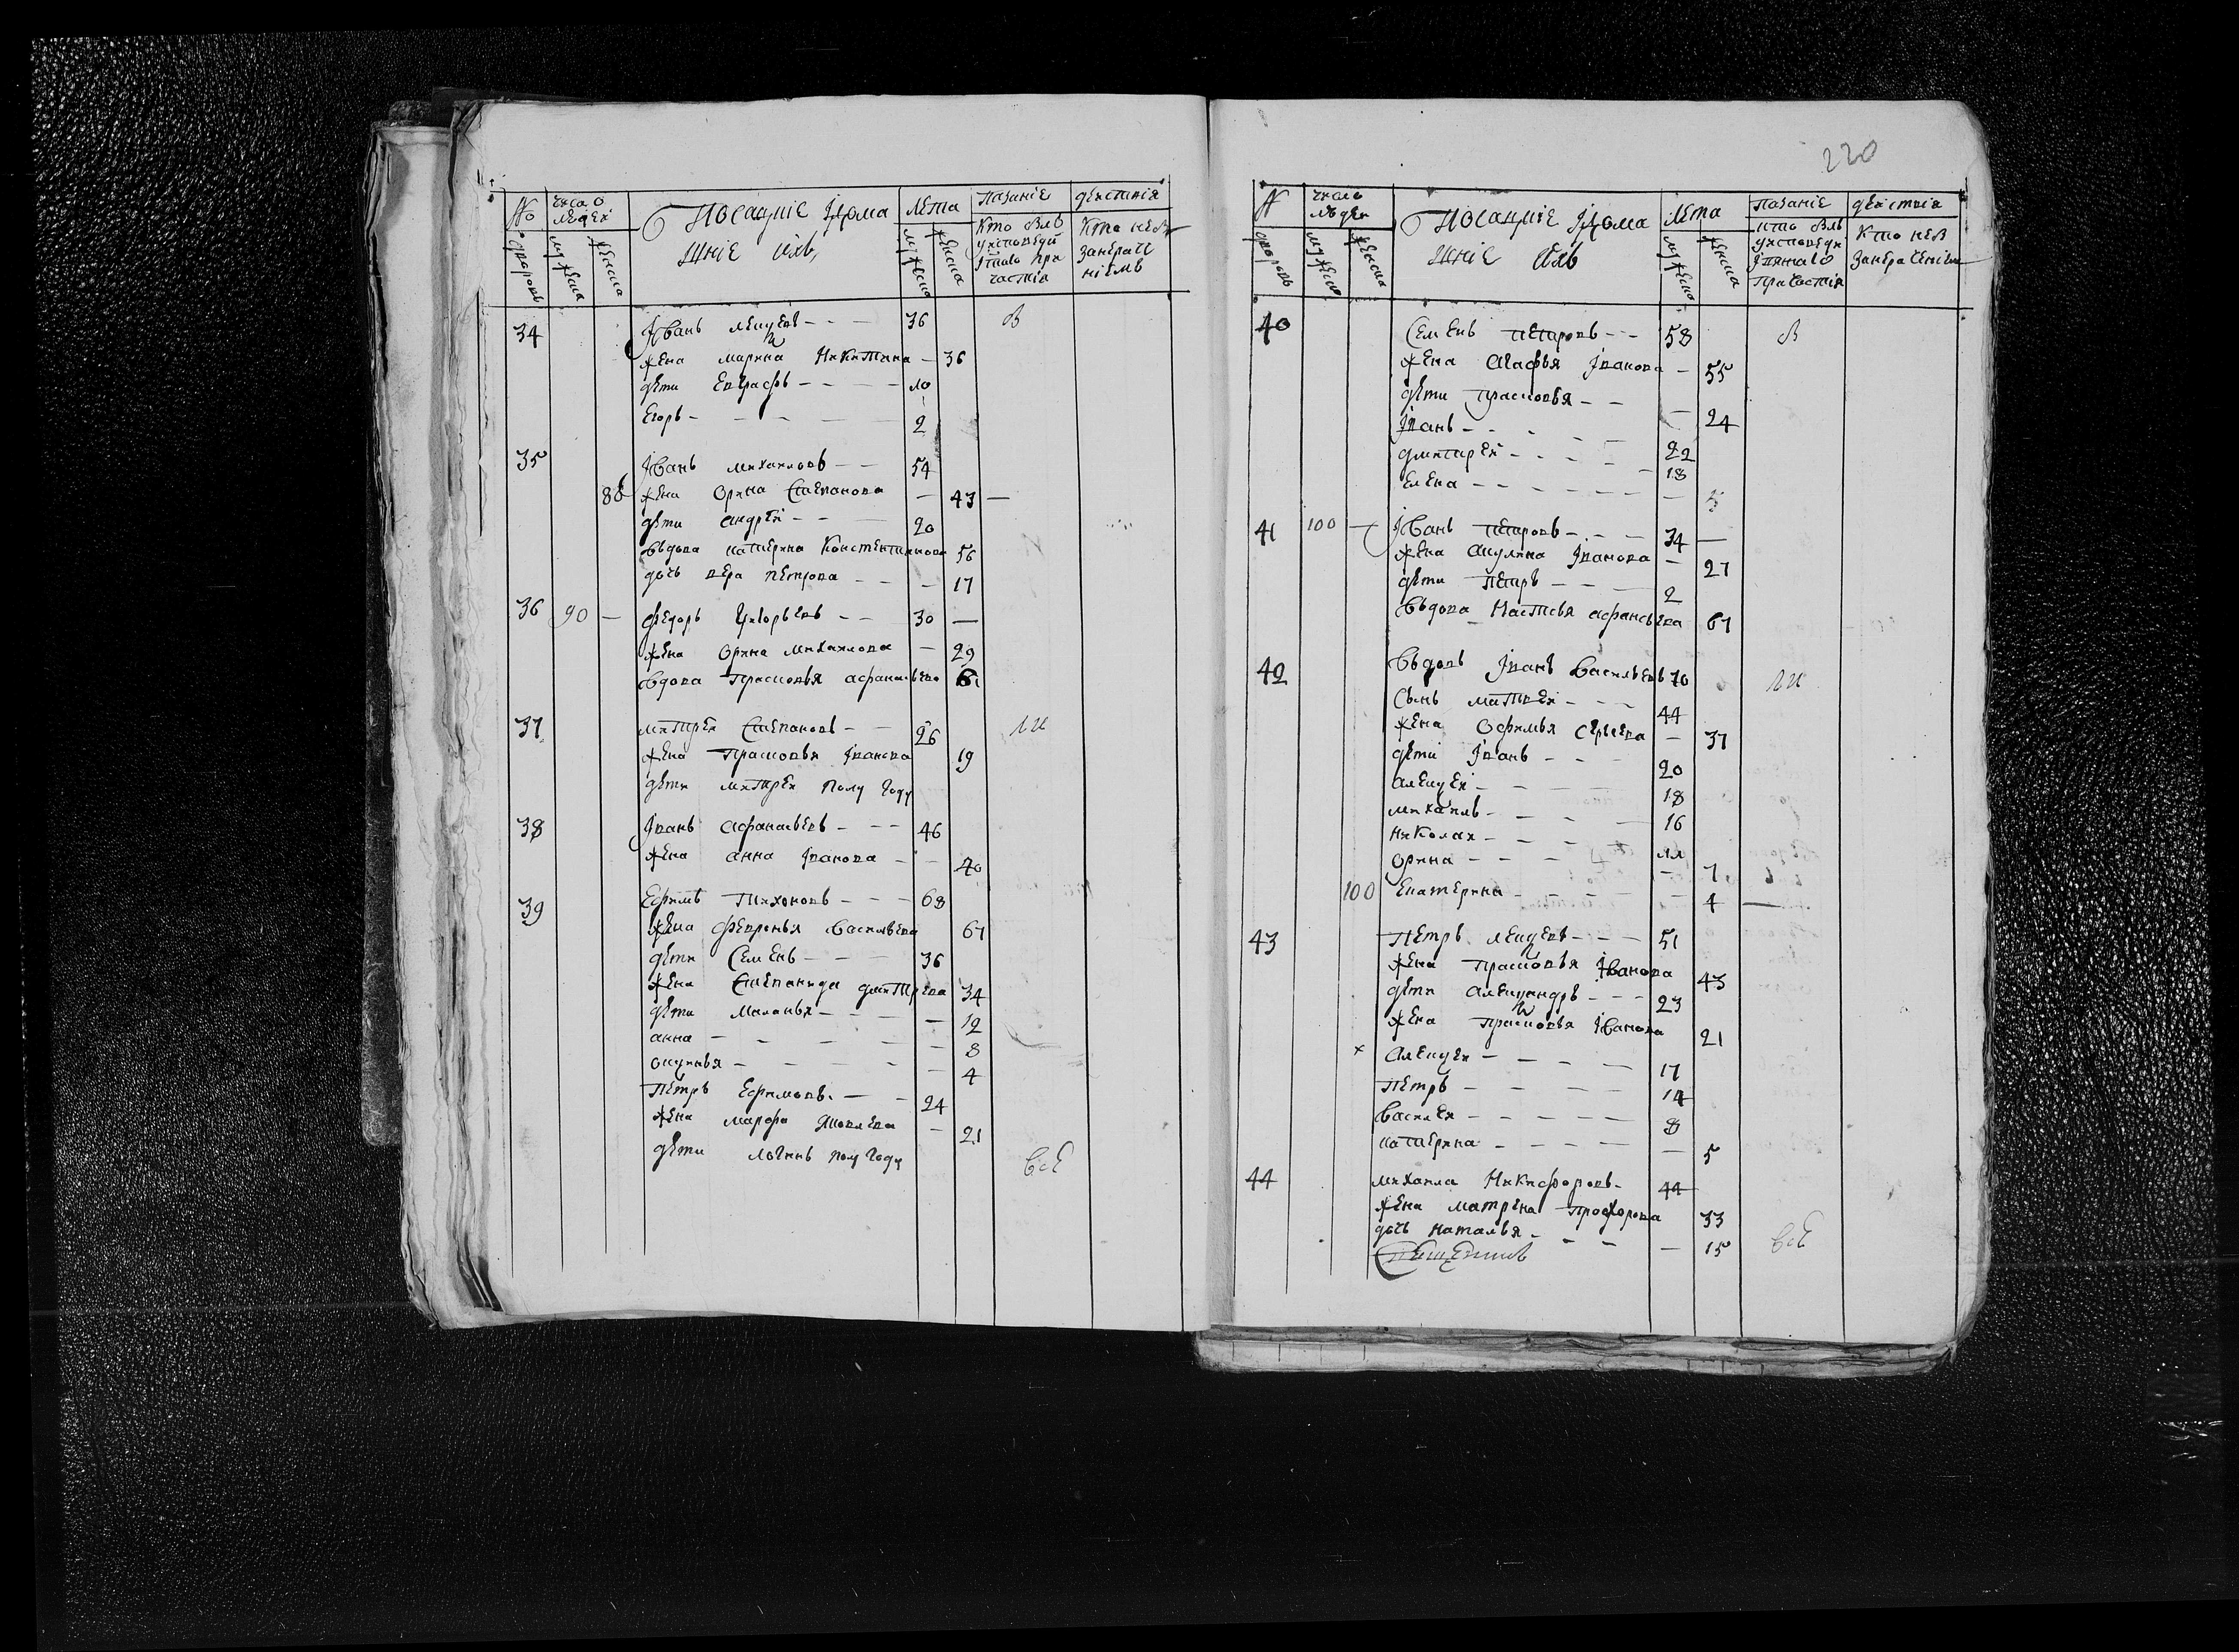 № дворовъ
число людей
мужеска
женска
Посадцкiе и дома
шнiе ихъ
Лета
мужеска
женска
Показанiе действия
Кто былъ у исповеди и святаго причастия
Кто не былъ за нерачениемъ
34 Иванъ лекцеевъ - - - 36 В
жена марина Никитина - 36
дети Евграфъ - - - 10
Егоръ - - - 2
35 Иванъ михаиловъ - - 54
88 жена орина Степанова - 43 -
дети андрей - - 20
вдова катерина Констентинова 56
дочь вера петрова - - 17
36 90 - федоръ григорьевъ - - 30 -
жена орина михаилова - 29
вдова прасковья афанасьева
37 митрей Степановъ - - 26
жена прасковья иванова 19
дети митрей полу году
38 иванъ афанасьевъ - - - 46
жена анна иванова - - 40
39 Ефимъ тихоновъ - - - 68
жена февронья васильева 67
дети Семенъ - - - 36
жена Степанида дмитрева 34
дети маланья - - - 12
анна - - - 8
окулинья - - - 4
петръ Ефимовъ - - - 24
жена марфа яковлева - 21
дети логинъ полу году
все
220
№ дворовъ
число людей
мужеска
женска
Посацкiе и дома
шнiе ихъ
лета
мужеска
женска
показанiе действия
кто былъ у исповеди и святаго причастия
Кто не былъ за нерачениемъ
40 Семенъ петровъ - - 58 В
жена агафья иванова - 55
дети прасковья - - 24
иванъ - - - 22
дмитрей - - - 18
елена - - - 5
41 100 - иванъ петровъ - - - 34 -
жена акулина иванова - 27
дети петръ - - - 2
вдова Настасья афанасьева 67
42 вдовъ иванъ васильевъ 70
сынъ матвей - - - 44
жена офимья сергеева - 37
дети иванъ - - - 20
алексей - - - 18
михаилъ - - - 16
николай - - - 11
орина - - - 7
100 Екатерина - - - 4 -
43 петръ лекцеевъ - - - 51
жена прасковья иванова 43
дети александръ - - - 23
жена прасковья иванова 21
x алексей - - - 17
петръ - - - 14
василей - - - 8
катерина - - - 5
44 михаила Никифоровъ - 44
жена матрена прохорова 33
дочь наталья - - - 15 все